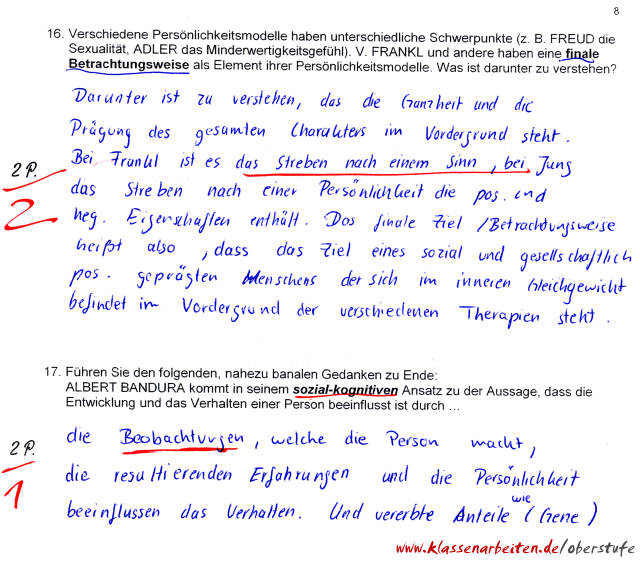 8
16. Verschiedene Persönlichkeitsmodelle haben unterschiedliche Schwerpunkte (z. B. FREUD die
Sexualität, ADLER das Minderwertigkeitsgefühl). V. FRANKL und andere haben eine finale
Betrachtungsweise als Element ihrer Persönlichkeitsmodelle. Was ist darunter zu verstehen?
Darunter ist zu verstehen, das die Ganzheit und die
Prägung des gesamten Charakters im Vordergrund steht.
Bei Frankl ist es das Streben nach einem Sinn, bei Jung
2 P.
das Streben nach einer Persönlichkeit die pos. und
2
neg. Eigenschaften enthält. Das finale Ziel /Betrachtungsweise
heißt also, dass das Ziel eines sozial und gesellschaftlich
pos. geprägten Menschens der sich im inneren Gleichgewicht
befindet im Vordergrund der verschiedenen Therapien steht.
17. Führen Sie den folgenden, nahezu banalen Gedanken zu Ende:
ALBERT BANDURA kommt in seinem sozial-kognitiven Ansatz zu der Aussage, dass die
Entwicklung und das Verhalten einer Person beeinflusst ist durch ...
die Beobachtungen, welche die Person macht,
2 P.
die resultierenden Erfahrungen und die Persönlichkeit
1
beeinflussen das Verhalten. Und vererbte Anteile wie (Gene)
www.klassenarbeiten.de/oberstufe